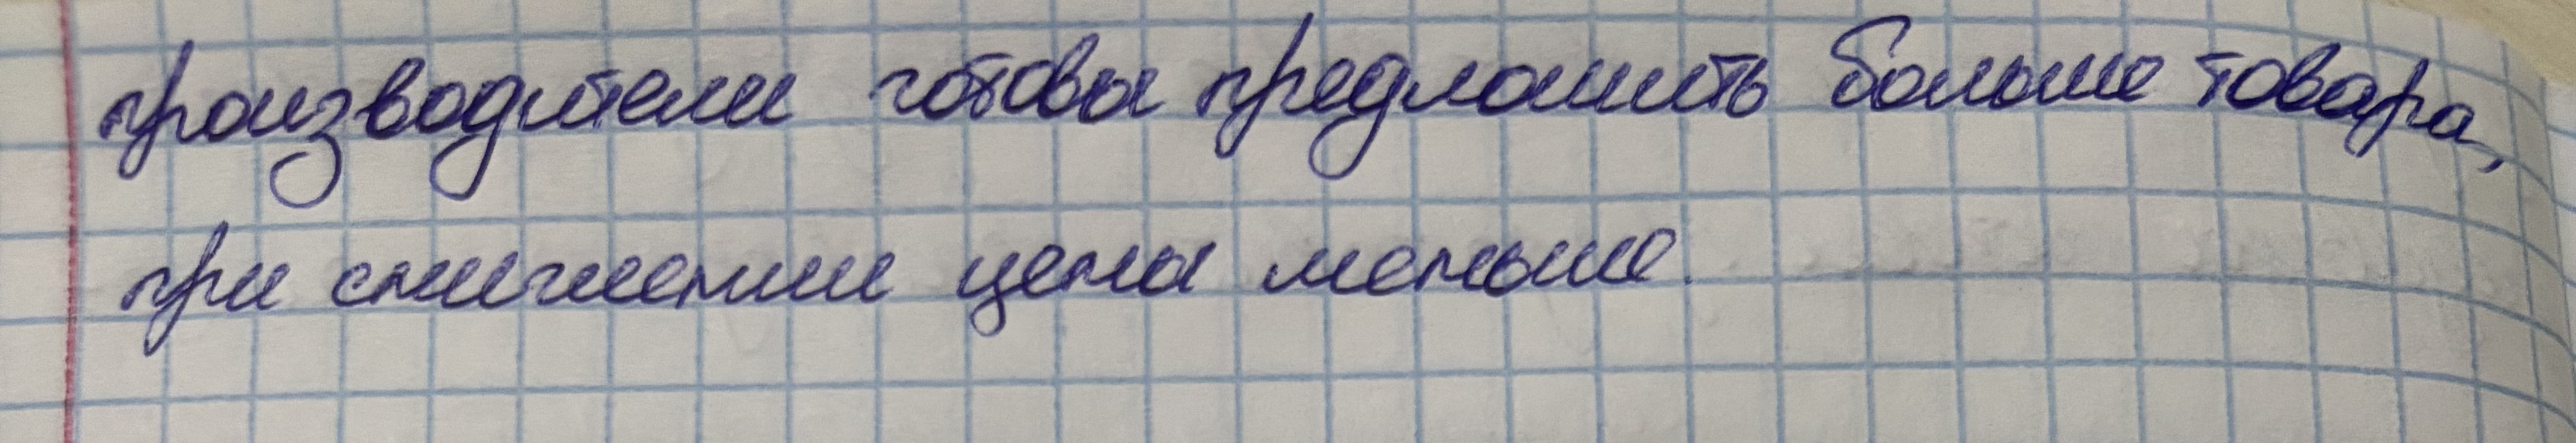 производители готовы предложить больше товара,
при снижении цены меньше.